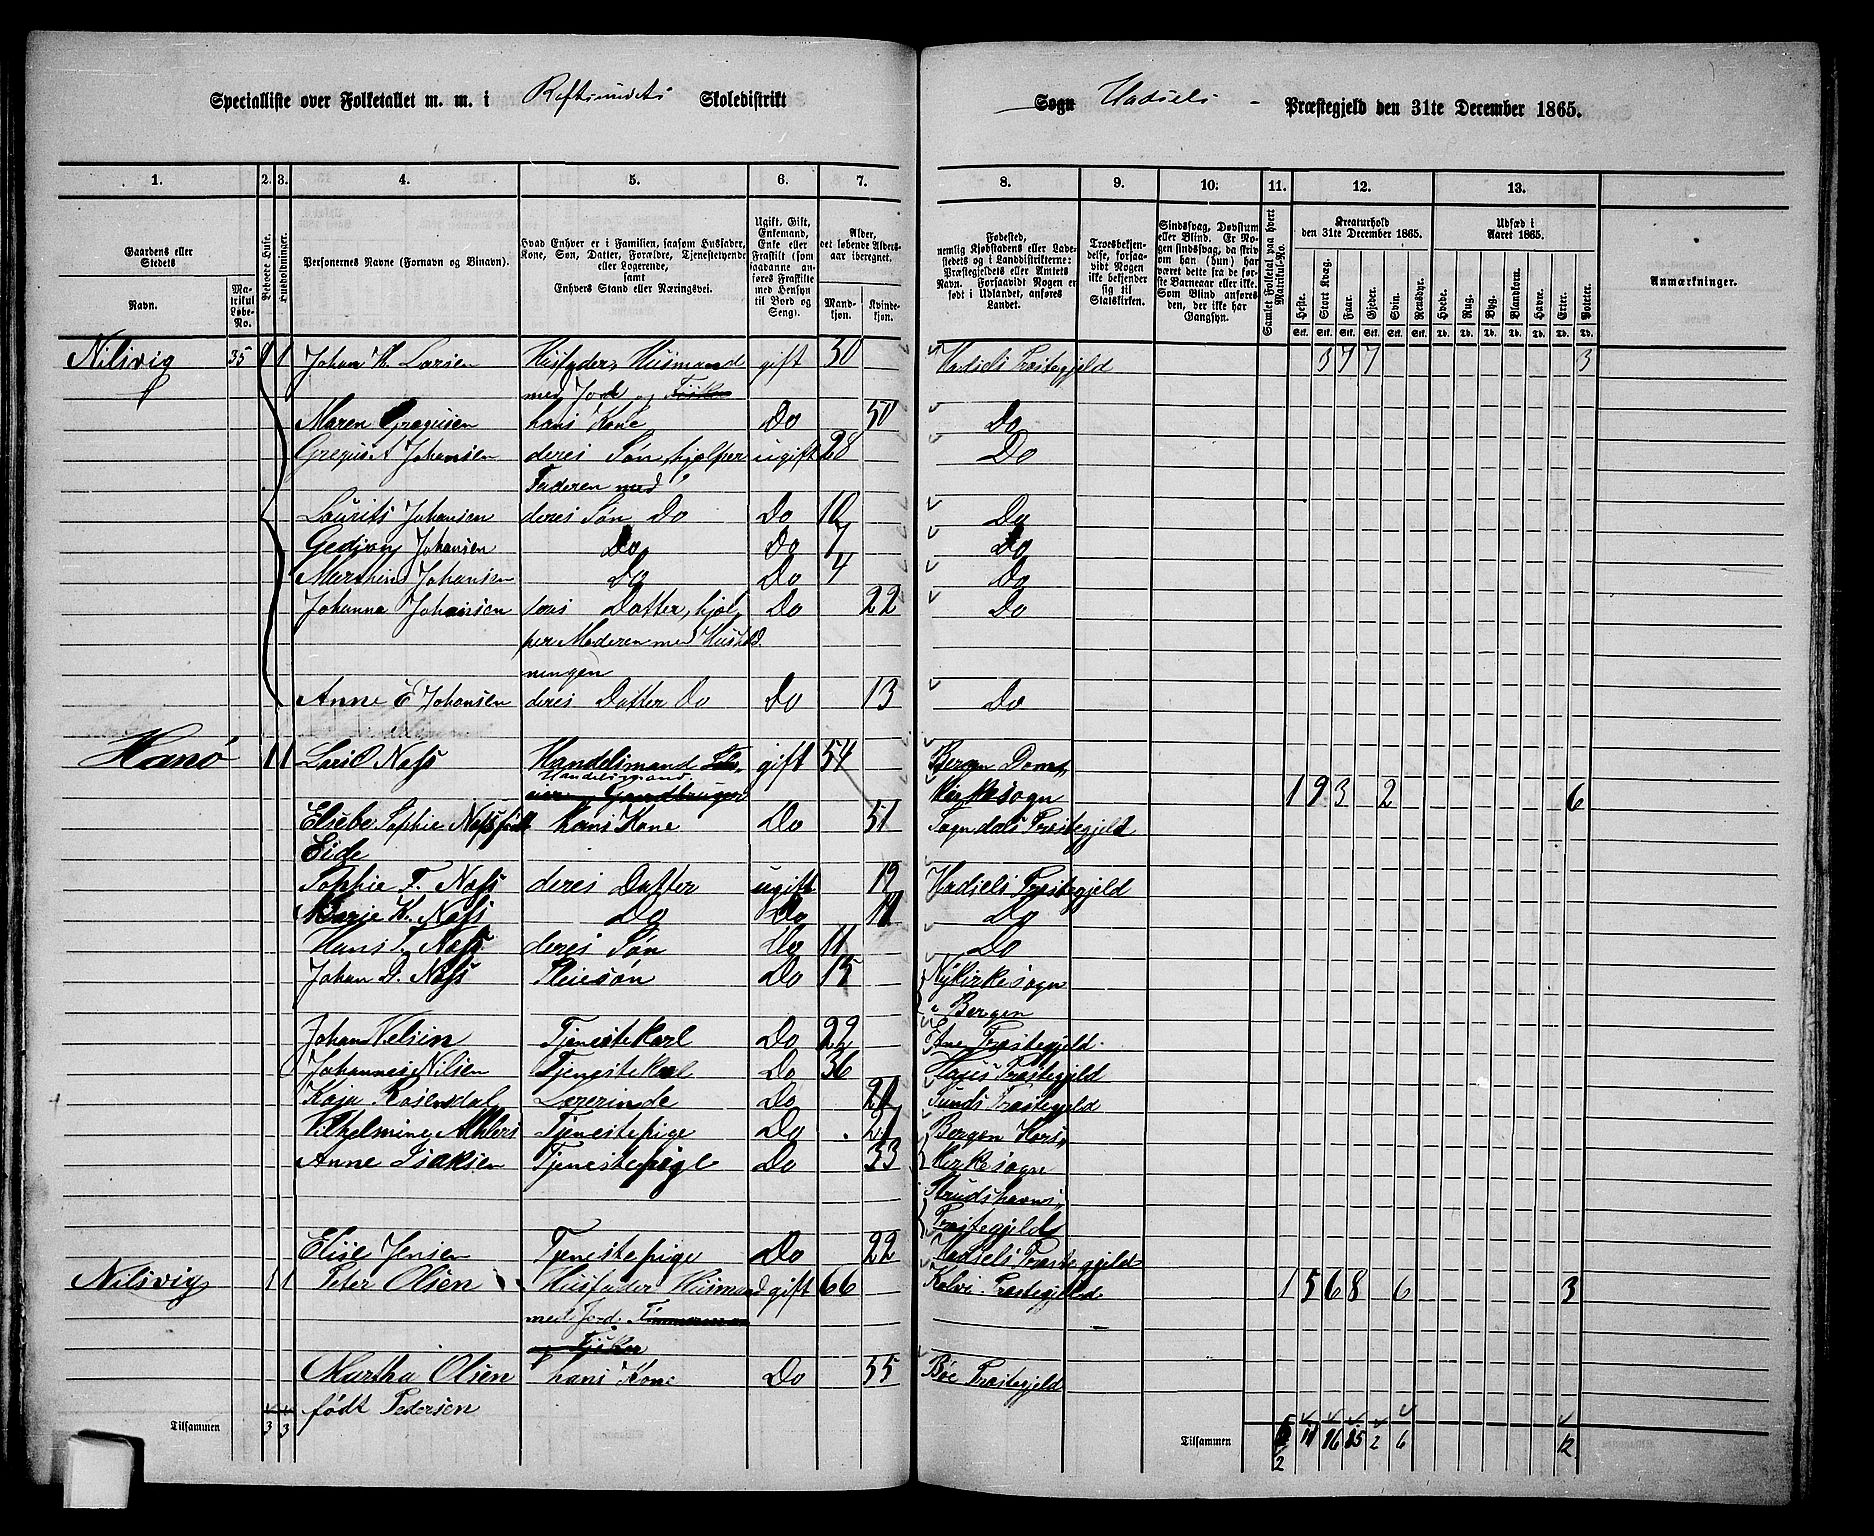 Specialliste over Folketallet m. m. i Raftsundets Skoledistrikt
Sogn Hadsels Præstegjeld den 31te December 1865.
1. 2. 3. 4. 5. 6. 7. 8. 9. 10. 11. 12. 13.
Gaardens eller Stedets
Navn.
Matrikul Løbe-No.
Beboede Huse.
Husholdninger.
Personernes Navne (Fornavn og Binavn).
Hvad Enhver er i Familien, saasom Husfader, Kone, Søn, Datter, Forældre, Tjenestetyende eller Logerende,
samt
Enhvers Stand eller Næringsvei.
Ugift, Gift, Enkemand, Enke eller Fraskilt (som saadanne anføres Fraskilte med Hensyn til Bord og Seng).
Alder, det løbende Alders-aar iberegnet.
Mand-kjøn.
Kvinde-kjøn.
Fødested,
nemlig Kjøbstadens eller Ladestedets og i Landdistrikterne: Præstegjeldets eller Amtets Navn. Forsaavidt Nogen er født i Udlandet, anføres Landet.
Troesbekjendelse, forsaavidt Nogen ikke bekjender sig til Statskirken.
Sindssvag, Døvstum eller Blind. Er Nogen sindssvag, da skrives om han (hun) har været dette fra de første Barneaar eller ikke. Som Blind anføres den, der ikke har Gangsyn.
Samlet Folketal paa hvert Matrikul-No.
Kreaturhold
den 31te December 1865.
Heste. Stort Kvæg. Faar. Gjeder. Svin. Rensdyr.
Udsæd i
Aaret 1865.
Hvede. Rug. Byg. Blandkorn. Havre. Erter. Poteter.
Anmærkninger.
Nilsvig 35 1 1 Johan H. Larsen Husfader, Husmand gift 50 Hadsels Præstegjeld 3 7 7 3
med Jord og Fisker
Maren Gregusen hans Kone Do 50 Do
Gregus A Johansen deres Søn, hjælper ugift 28 Do
Faderen med
Laurits Johansen deres Søn Do Do 10 Do
Johansen Do Do 7 Do
Johansen Do Do 4 Do
Johanna Johansen deres Datter, hjel- Do 22 Do
per Moderen med Hushold
ningen
Anne E Johansen deres Datter Do Do 13 Do
Hanø 1 1 Nafs Handelsmand gift 54 Bergen Dom-
Handelsmand
Gaardbruger Kirkesogn 1 9 3 2 6
Elsebe Sophie Nafs født hans Kone Do 51 Sogndals Præstegjeld
Eide
Sophie F. Nafs deres Datter ugift 19 Hadsels Præstegjeld
Marje K. Nafs Do Do Do
Hans Nafs deres Søn Do 11 Do
Johan D. Nafs Pleiesøn Do 15 Nykirkesogn
i Bergen
Johan Nelsen Tjenestekarl Do 22 Præstegjeld
Johannes Nilsen Tjenestekarl Do 36 Præstegjeld
Kaja Rosendal Lærerinde Do Sunds Præstegjeld
Vilhelmine Ahlers Tjenestepige Do Bergen Kors-
Anne Isaksen Tjenestepige Do 33 Kirkesogn
Præstegjeld
Elise Jensen Tjenestepige Do 22 Hadsels Præstegjeld
Nilsvig 1 1 Peter Olsen Husfader Husmand gift 66 Præstegjeld 1 5 6 8 6 3
med Jord. Tømmermand
og Fisker
Martha Olsen hans Kone Do 55 Bøe Præstegjeld
født Pedersen
Tilsammen 3 3
Tilsammen 2 6 12